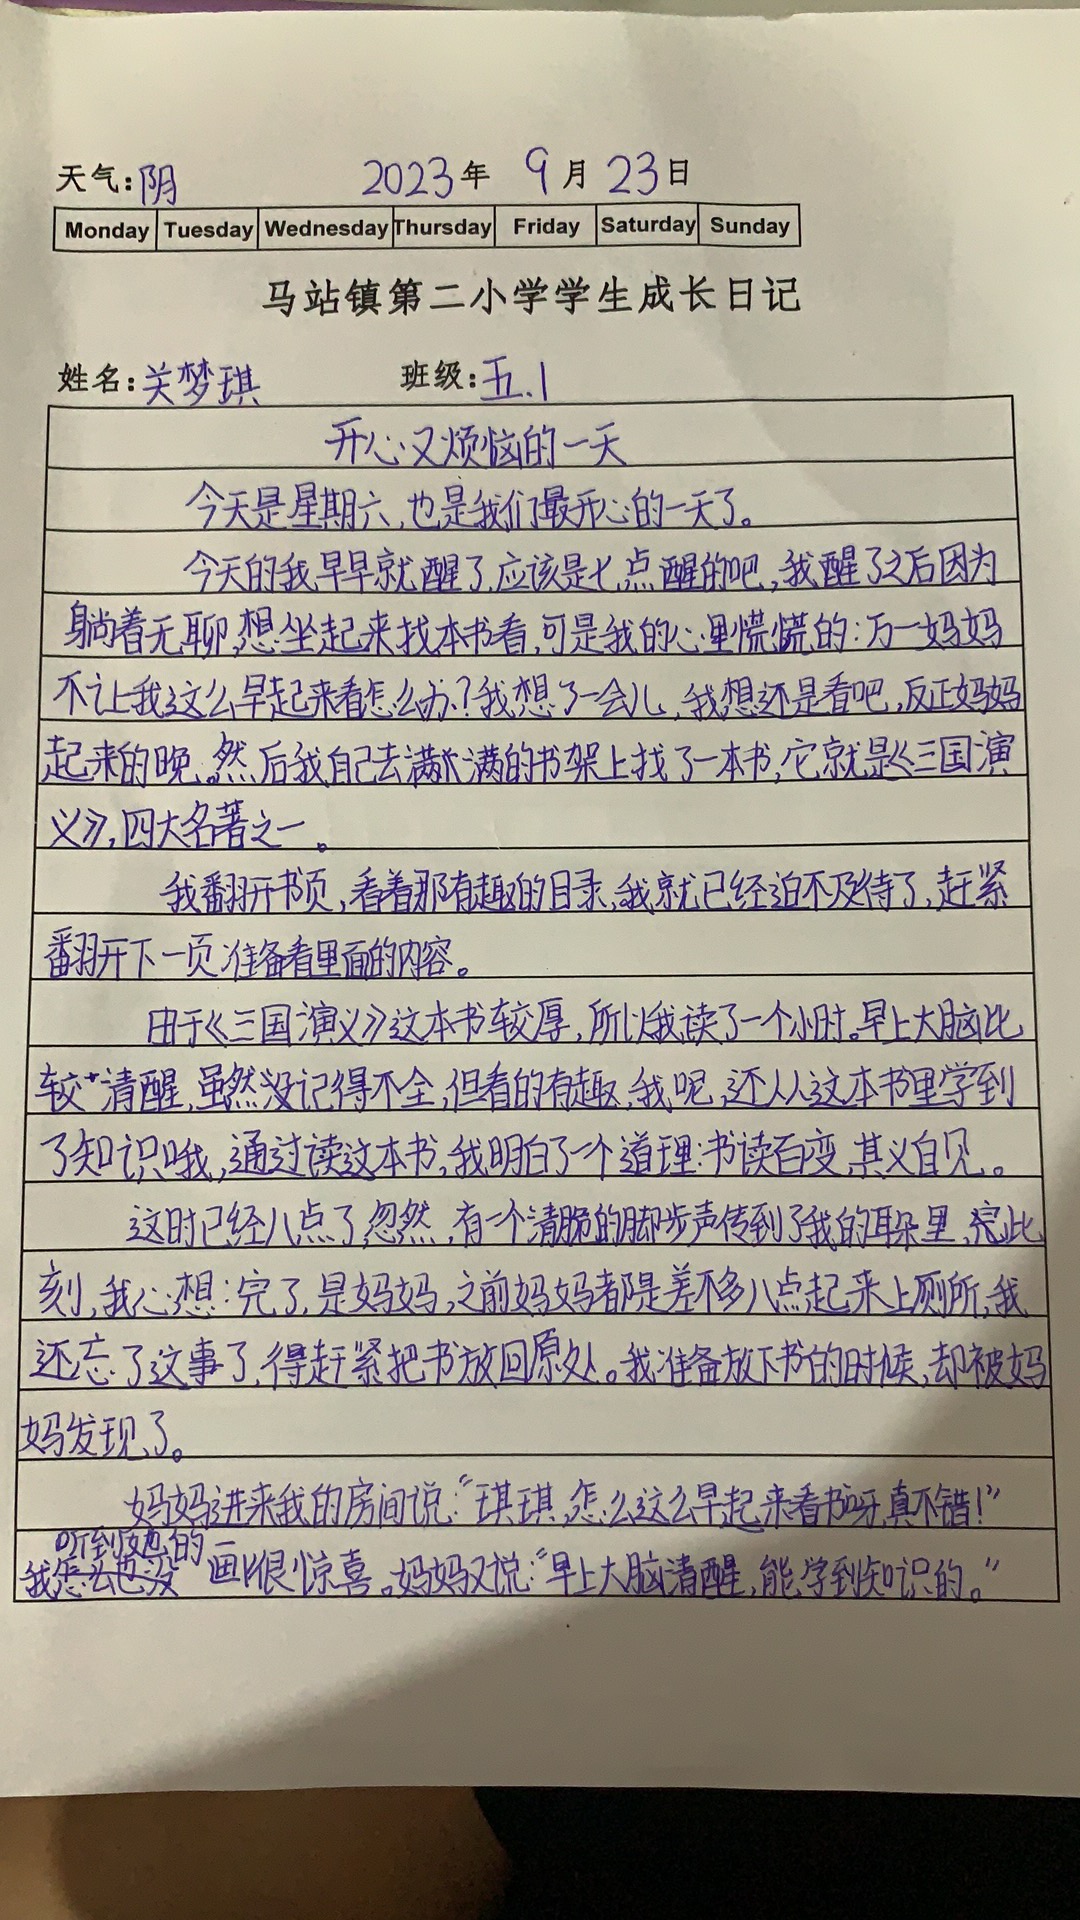 天气:阴 2023年 9月23日
Monday Tuesday Wednesday Thursday Friday Saturday Sunday
马站镇第二小学学生成长日记
姓名:关梦琪 班级:五.1
开心又烦恼的一天
今天是星期六,也是我们最开心的一天了。
今天的我早早就醒了,应该是七点醒的吧,我醒了之后因为
躺着无聊,想坐起来找本书看,可是我的心里慌慌的:万一妈妈
不让我这么早起来看怎么办?我想了一会儿,我想还是看吧,反正妈妈
起来的晚。然后我自己去满满的书架上找了一本书,它就是《三国演
义》,四大名著之一。
我翻开书页,看着那有趣的目录,我就已经迫不及待了,赶紧
翻开下一页准备看里面的内容。
由于《三国演义》这本书较厚,所以我读了一个小时。早上大脑比
较清醒,虽然没记得不全,但看的有趣,我呢,还从这本书里学到
了知识哦,通过读这本书,我明白了一个道理:书读百变,其义自见。
这时已经八点了,忽然,有一个清脆的脚步声传到了我的耳朵里,此
刻,我心想:完了,是妈妈,之前妈妈都是差不多八点起来上厕所,我
还忘了这事了,得赶紧把书放回原处。我准备放下书的时候,却被妈
妈发现了。
妈妈进来我的房间说:“琪琪,怎么这么早起来看书呀,真不错!”
听到
我 很惊喜。妈妈又说:“早上大脑清醒,能学到知识的。”